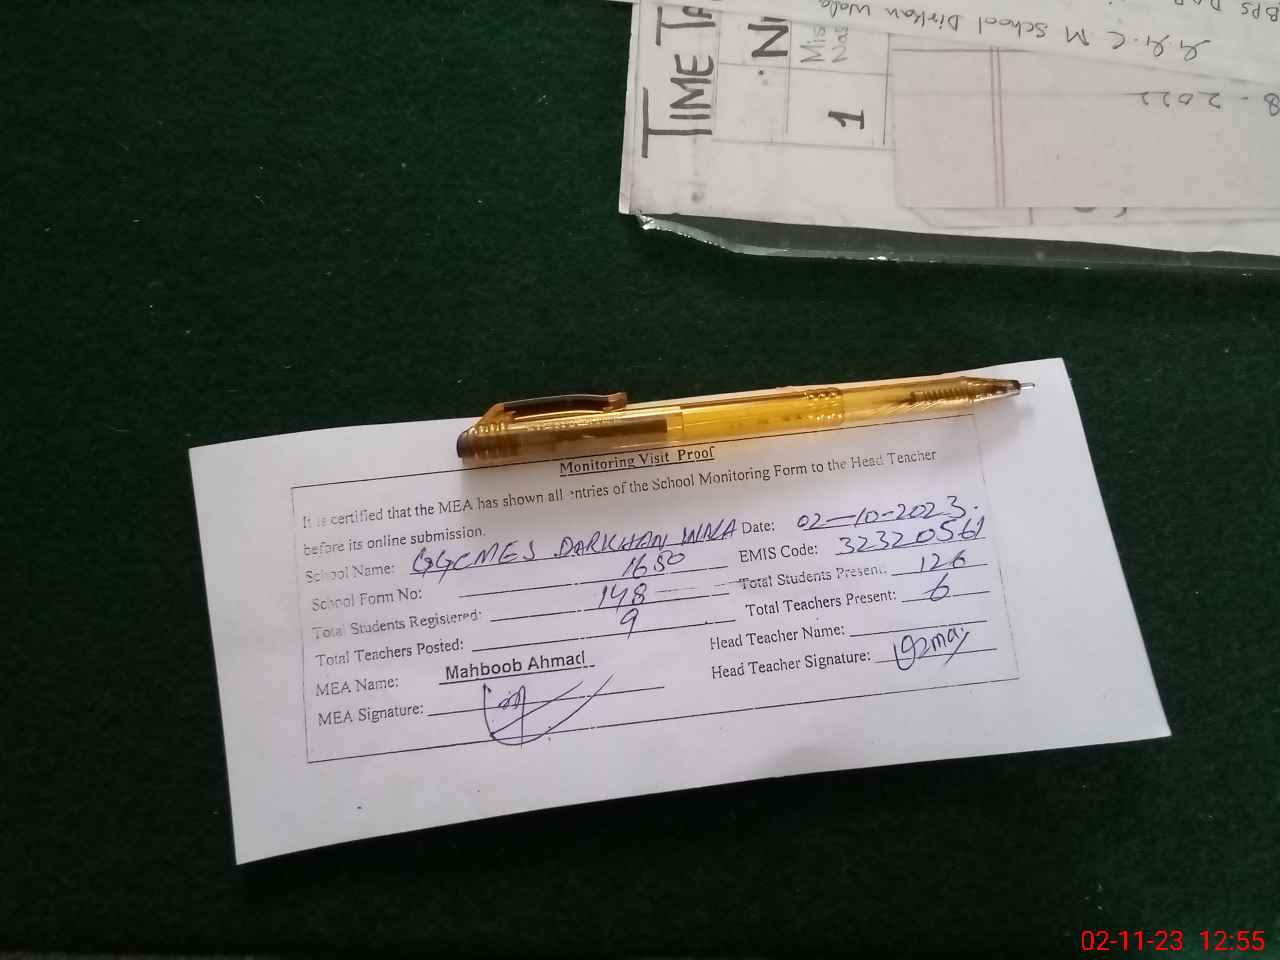 TIME TA
N
Mis
Nas
1
G.G.C.M School Dirkan Wala
BPS
8 - 2022
Monitoring Visit Proof
It is certified that the MEA has shown all entries of the School Monitoring Form to the Head Teacher
before its online submission.
School Name: GGCMES DARKHAN WALA Date: 02-10-2023.
School Form No: 1680 EMIS Code: 32320561
Total Students Registered: 148 Total Students Present: 126
Total Teachers Posted: 9 Total Teachers Present: 6
MEA Name: Mahboob Ahmad Head Teacher Name:
MEA Signature: Head Teacher Signature: Uzma
02-11-23 12:55